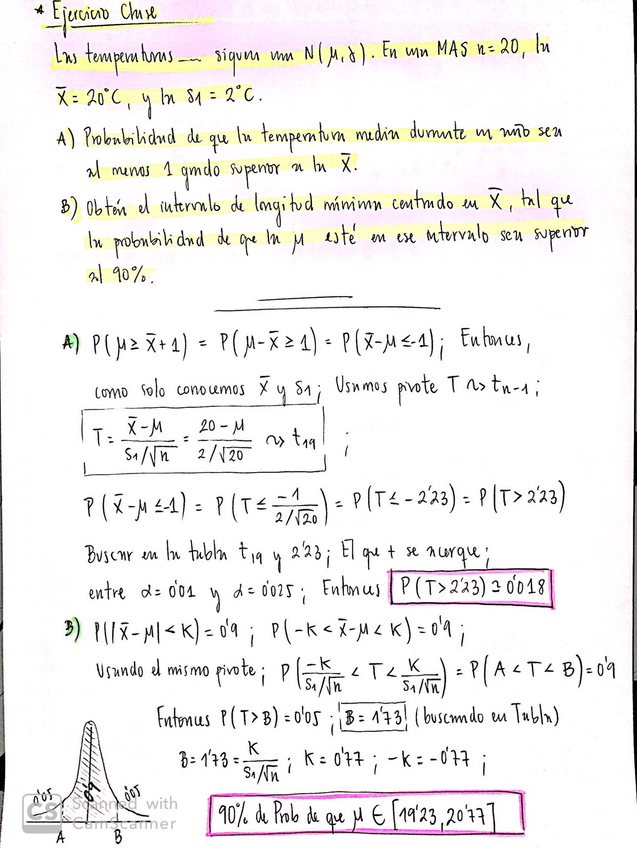 * Ejercicio Clase
Las temperaturas ... siguen una N(μ, γ). En un MAS n=20, la
X̄ = 20°C, y la S1 = 2°C.
A) Probabilidad de que la temperatura media durante un año sea
al menos 1 grado superior a la X̄.
B) Obtén el intervalo de longitud mínima centrado en X̄, tal que
la probabilidad de que la μ esté en ese intervalo sea superior
al 90%.
A) P(μ ≥ X̄+1) = P(μ-X̄ ≥ 1) = P(X̄-μ ≤ -1); Entonces,
como solo conocemos X̄ y S1; Usamos pivote T ~> t n-1;
T = (X̄-μ)/(S1/√n) = (20-μ)/(2/√20) ~> t19 ;
P(X̄-μ ≤ -1) = P(T ≤ -1/(2/√20)) = P(T ≤ -2'23) = P(T > 2'23)
Buscar en la tabla t19 y 2'23; El que + se acerque;
entre α = 0'01 y α = 0'025; Entonces P(T > 2'23) ≅ 0'018
B) P(|X̄-μ| < K) = 0'9 ; P(-K < X̄-μ < K) = 0'9 ;
Usando el mismo pivote; P(-K/(S1/√n) < T < K/(S1/√n)) = P(A < T < B) = 0'9
Entonces P(T > B) = 0'05 ; B = 1'73 (buscando en Tabla)
B = 1'73 = K/(S1/√n) ; K = 0'77 ; -K = -0'77 ;
0'05 0'9 0'05
A B
90% de Prob de que μ ∈ [19'23, 20'77]
CS Scanned with
CamScanner